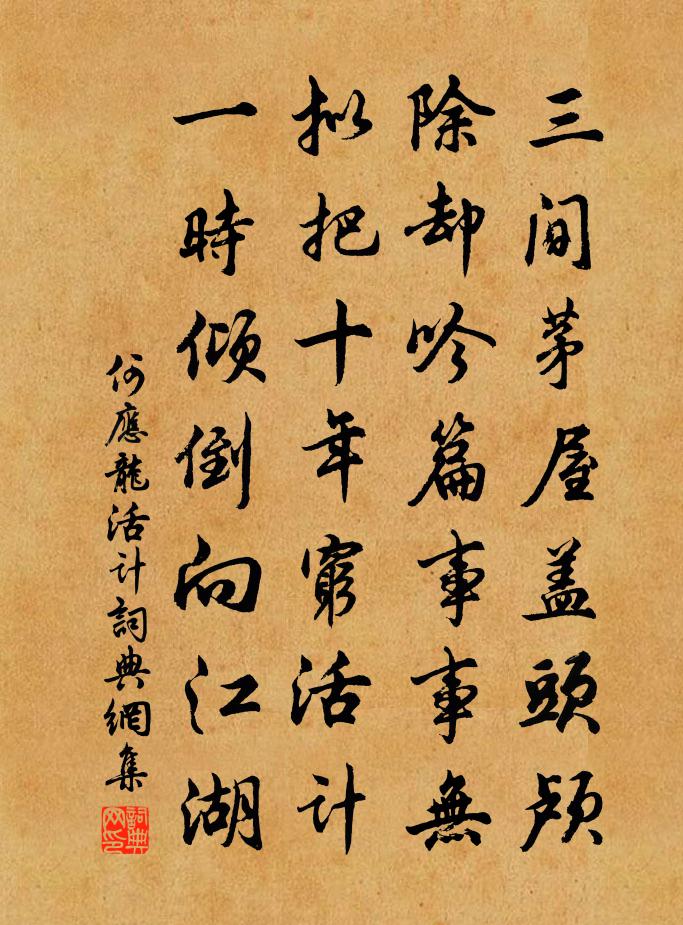 三間茅屋盖頭顱
除却吟篇事事無
拟把十年窮活計
一時傾倒向江湖
何應龍活計詞典網集
詞典网印